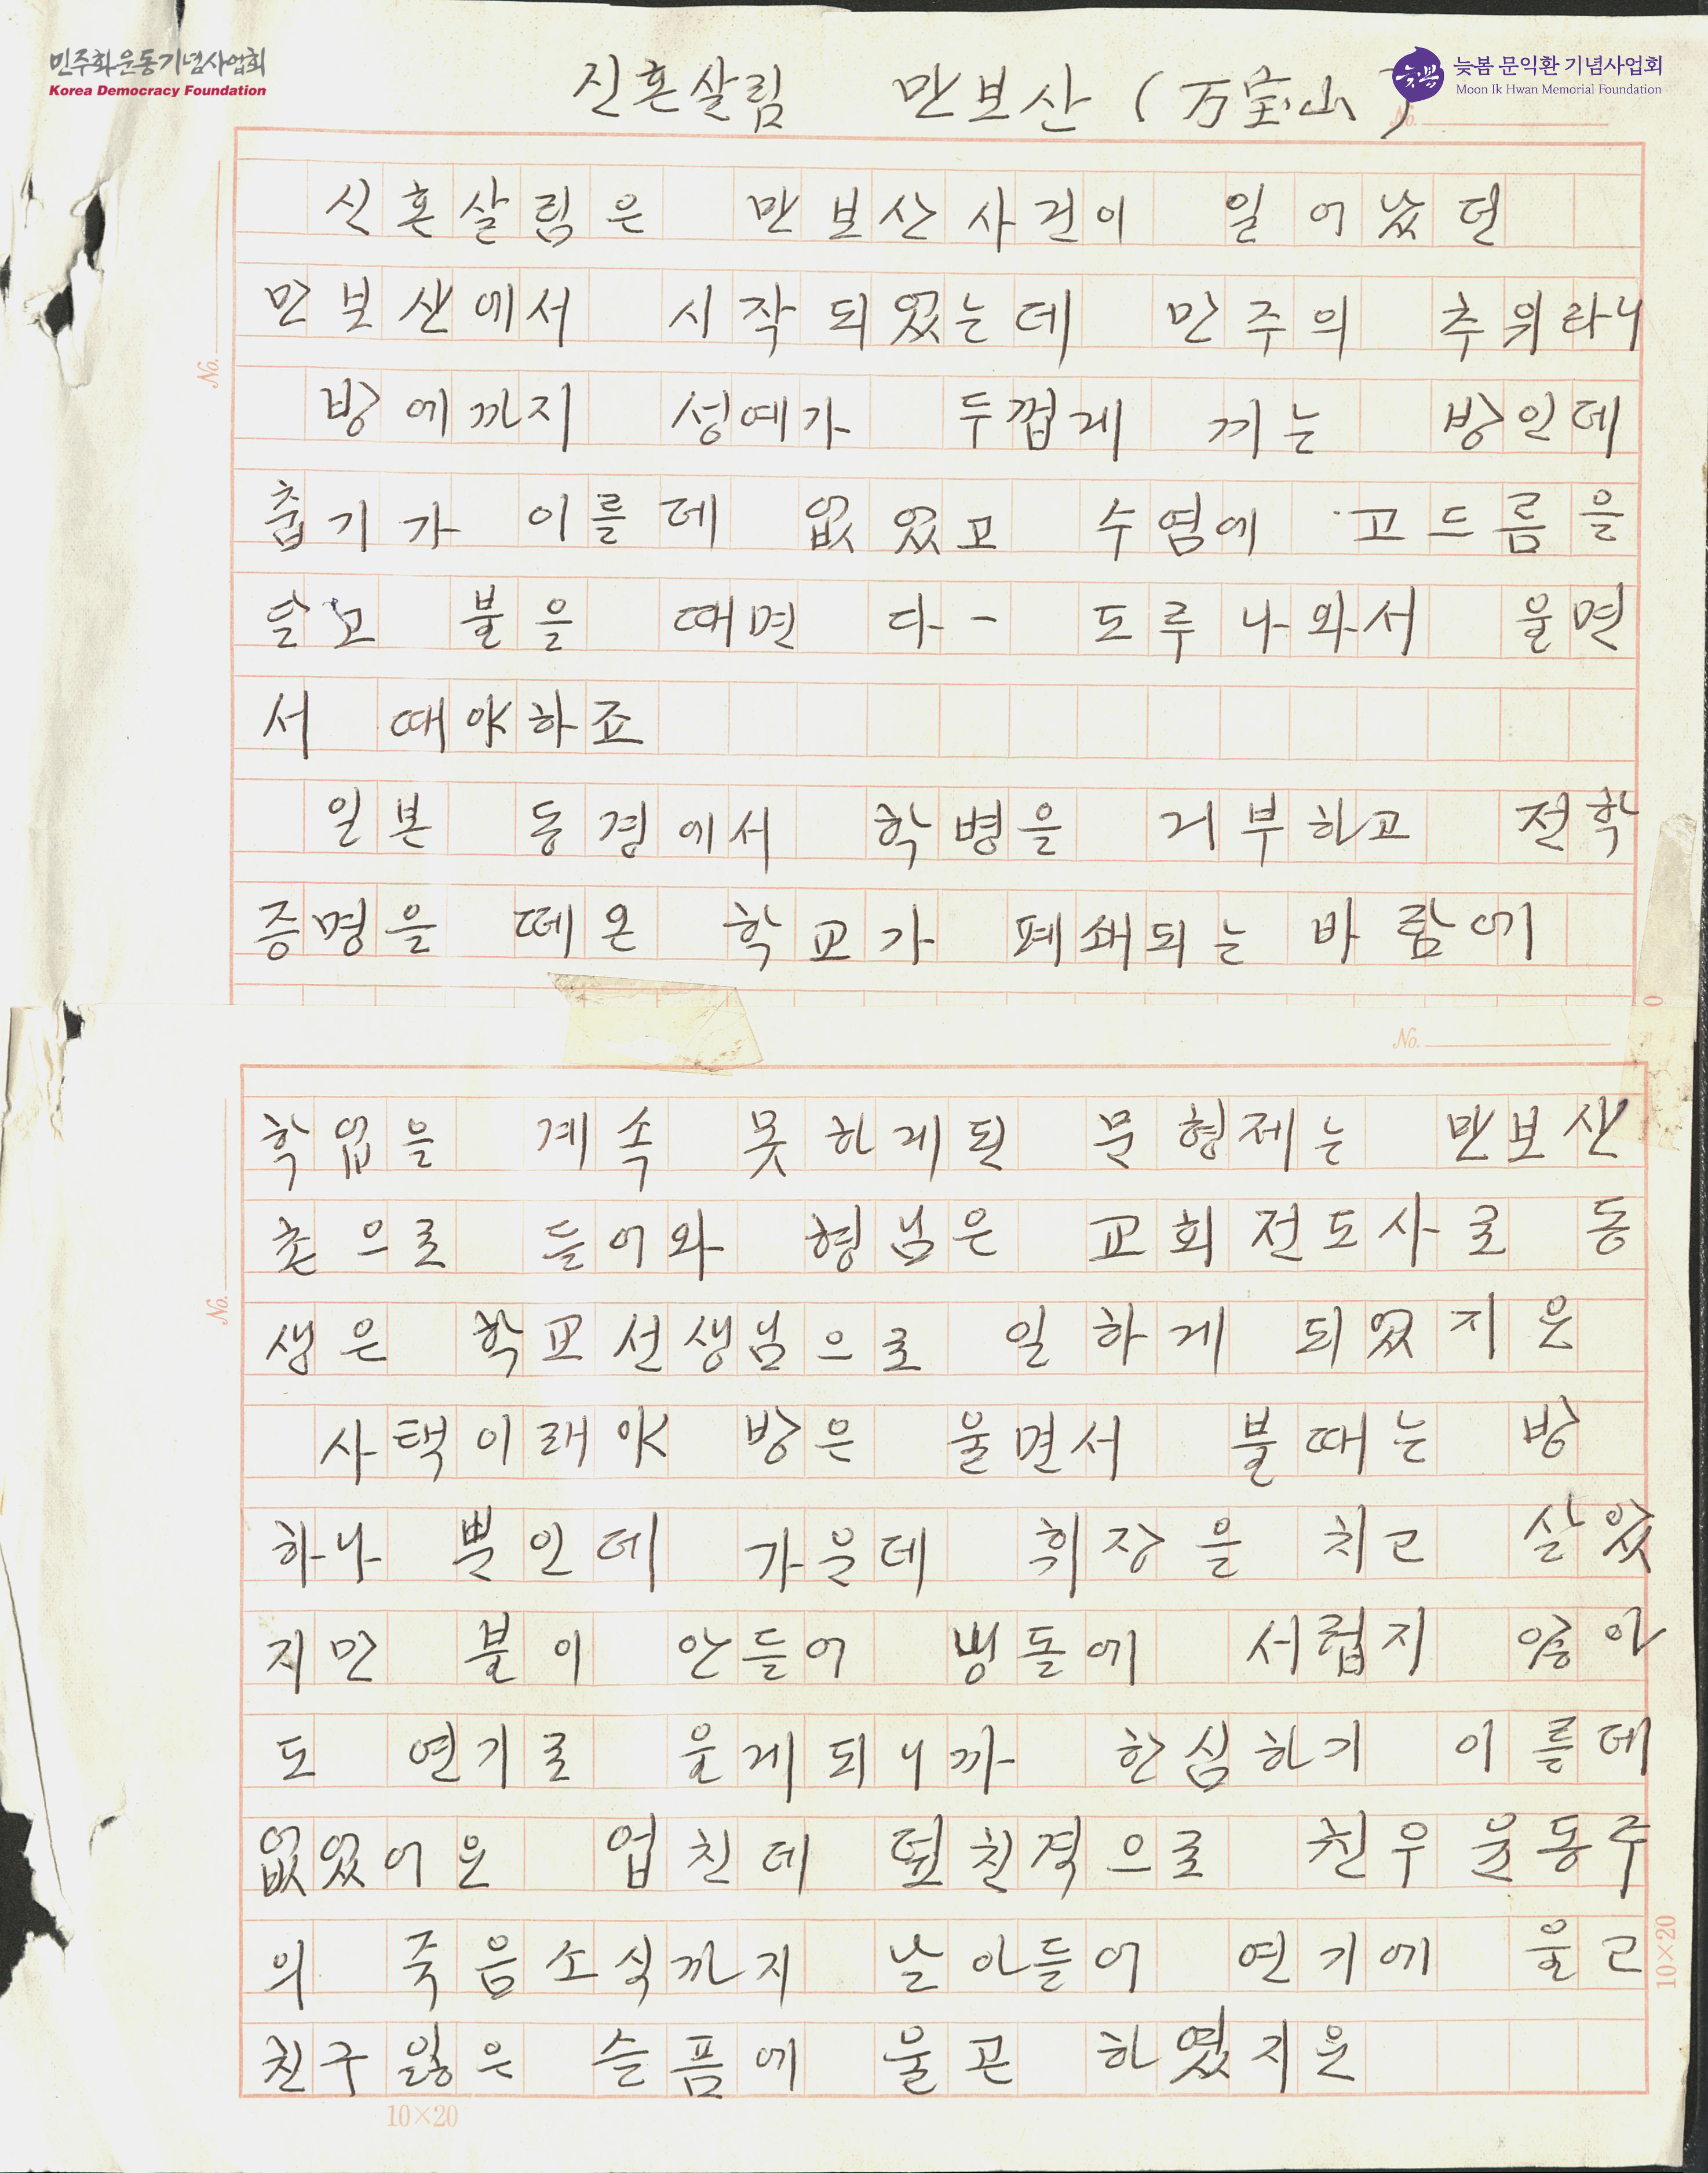 민주화운동기념사업회
Korea Democracy Foundation
늦봄 문익환 기념사업회
Moon Ik Hwan Memorial Foundation
늦봄
진혼살림 만보산 (万宝山)
No.
No.
신혼살림은 만보산사건이 일어났던
만보산에서 시작되였는데 만주의 추위라니
방에까지 성예가 두껍게 끼는 방인데
춥기가 이를데 없었고 수염에 고드름을
달고 불을 때면 다- 도루나와서 울면
서 때야하죠
일본 동경에서 학병을 거부하고 전학
증명을 떼온 학교가 폐쇄되는 바람에
0
No.
No.
학업을 계속 못하게된 문형제는 만보산
촌으로 들어와 형님은 교회전도사로 동
생은 학교선생님으로 일하게 되었지온
사택이래야 방은 울면서 불때는 방
하나 뿐인데 가운데 휘장을 치고 살았
지만 불이 안들어 벵돌에 서럽지 않아
도 연기로 울게되니까 한심하기 이를데
없었어온 업친데 덮친격으로 친우윤동주
의 죽음소식까지 날아들어 연기에 울고
친구잃은 슬픔에 울곤 하였지온
10×20
10×20